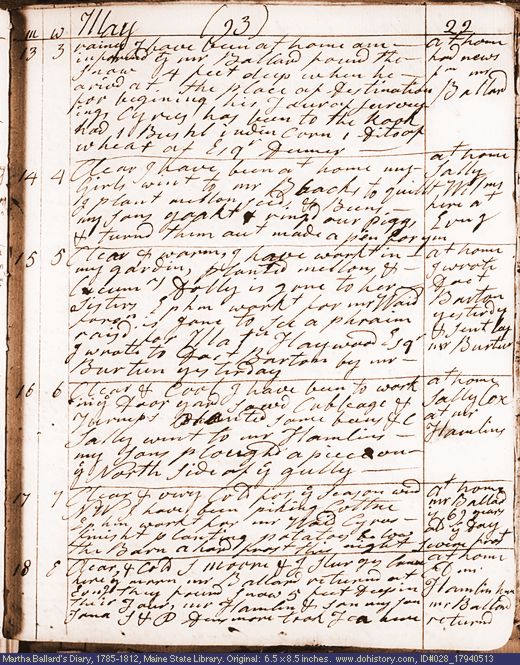 m w May (23) 22
13 3 rainy I have been at home am
informd by mr Ballard found the
Snow 4 feet deep when he
arivd at the place of Destination
for begining his Tour of survey
ing Cyrus has been to the hook
had 1 Bushl indien Corn 1 Ditto of
wheat of Esqr Dumer
at home
had news
fm mr
Ballard
14 4 Clear I have been at home my
Girls went to mr Blacks to quilt
I plant mellon seeds & Beens
my sons yoakt & ringd our piggs
& turnd them out made a pen for ym
at home
Sally
here at
15 5 Clear & warm, I have workt in
my garden, planted mellons &
Cucumrs Dolly is gone to her
Sisters Ephm workt for mr Wood
is gone to
raisd
I wrote to Doct Barton by mr
Burtun yesterday
at home
I wrote
Doct
Barton
yesterdy
& sent by
mr Burtun
16 6 Clear & Cool I have been to work
in ye Door yard sowd Cabbage &
Turnips planted some beens &C
Sally went to mr Hamlins
my sons ploughd a piece on
ye North Side of ye gully
at home
Sally Cox
at mr
Hamlins
17 7 Clear & very Cold for ye season wind
N W I have been piking cotten
Ephm workt for mr Wood Cyrus
finisht planting potatoes below
the Barn a hard frost this night
at home
mr Ballard
is 69 years
old ys Day
severe frost
18 8 Clear, & Cold S moore &
here ye morn mr Ballard returnd at
they found snow 5 feet Deep in
their Tour, mr Hamlin & Son my son
at home
Dm
Hamlin here
mr Ballard
returnd
Martha Ballard's Diary, 1785-1812, Maine State Library. Original: 6.5 x 8.5 inches. www.dohistory.com, ID#028_17940513